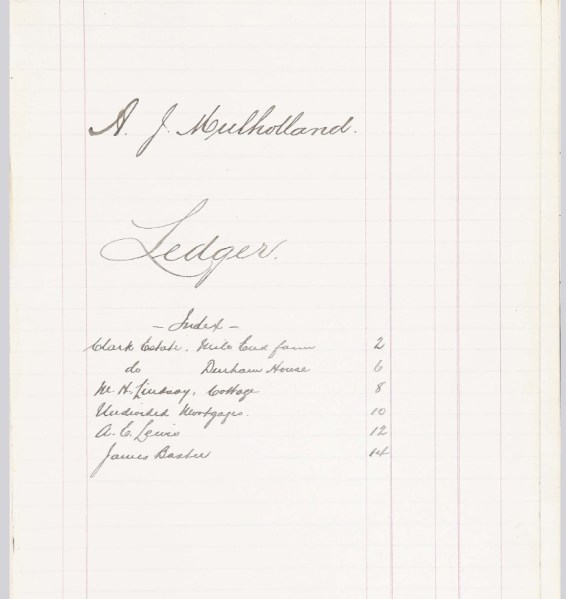 A. J. Mulholland.
Ledger.
- Index -
Clark Estate. Mile End farm 2
do Durham House 6
M. H. Lindsay, Cottage 8
Undivided Mortgages. 10
A. C. Lewis 12
James Baxter 14